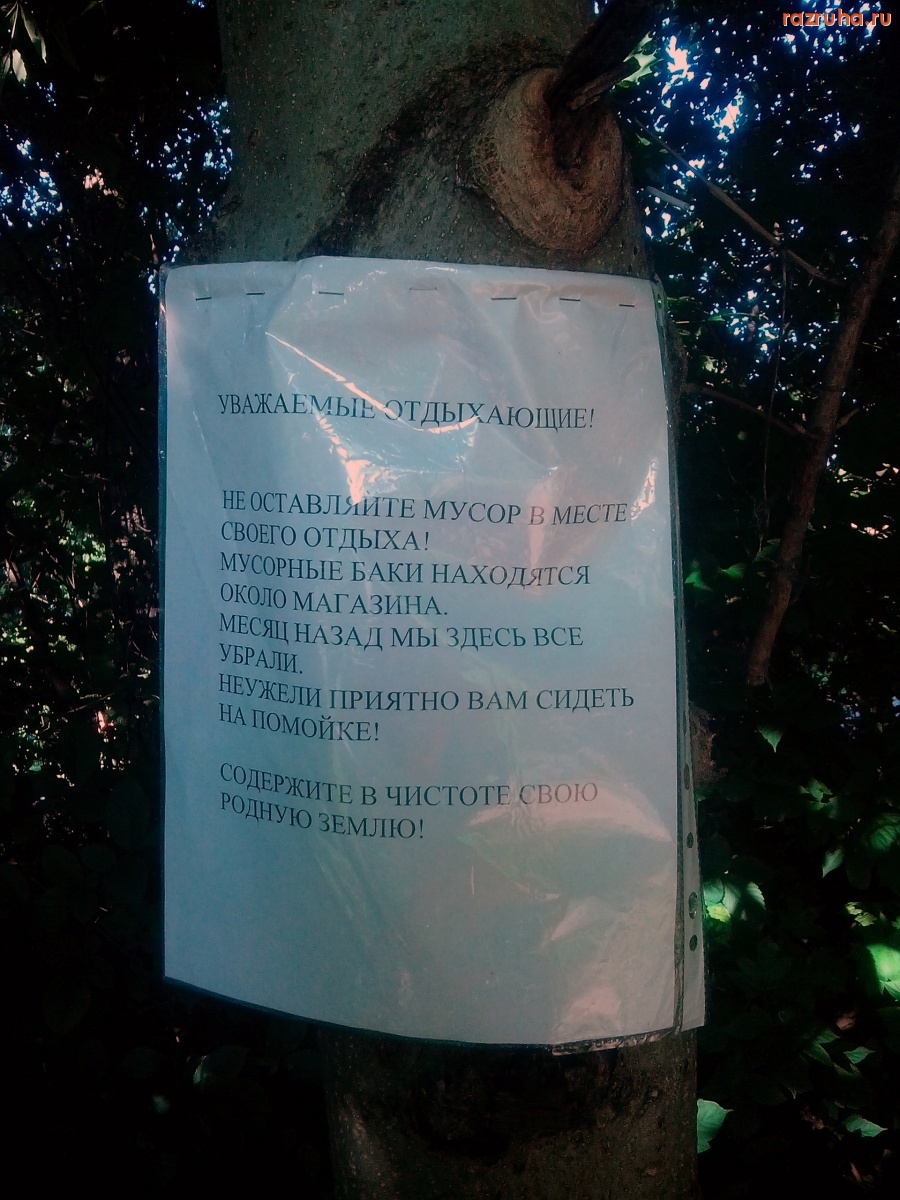 razruha.ru
УВАЖАЕМЫЕ ОТДЫХАЮЩИЕ!
НЕ ОСТАВЛЯЙТЕ МУСОР В МЕСТЕ
СВОЕГО ОТДЫХА!
МУСОРНЫЕ БАКИ НАХОДЯТСЯ
ОКОЛО МАГАЗИНА.
МЕСЯЦ НАЗАД МЫ ЗДЕСЬ ВСЕ
УБРАЛИ.
НЕУЖЕЛИ ПРИЯТНО ВАМ СИДЕТЬ
НА ПОМОЙКЕ!
СОДЕРЖИТЕ В ЧИСТОТЕ СВОЮ
РОДНУЮ ЗЕМЛЮ!